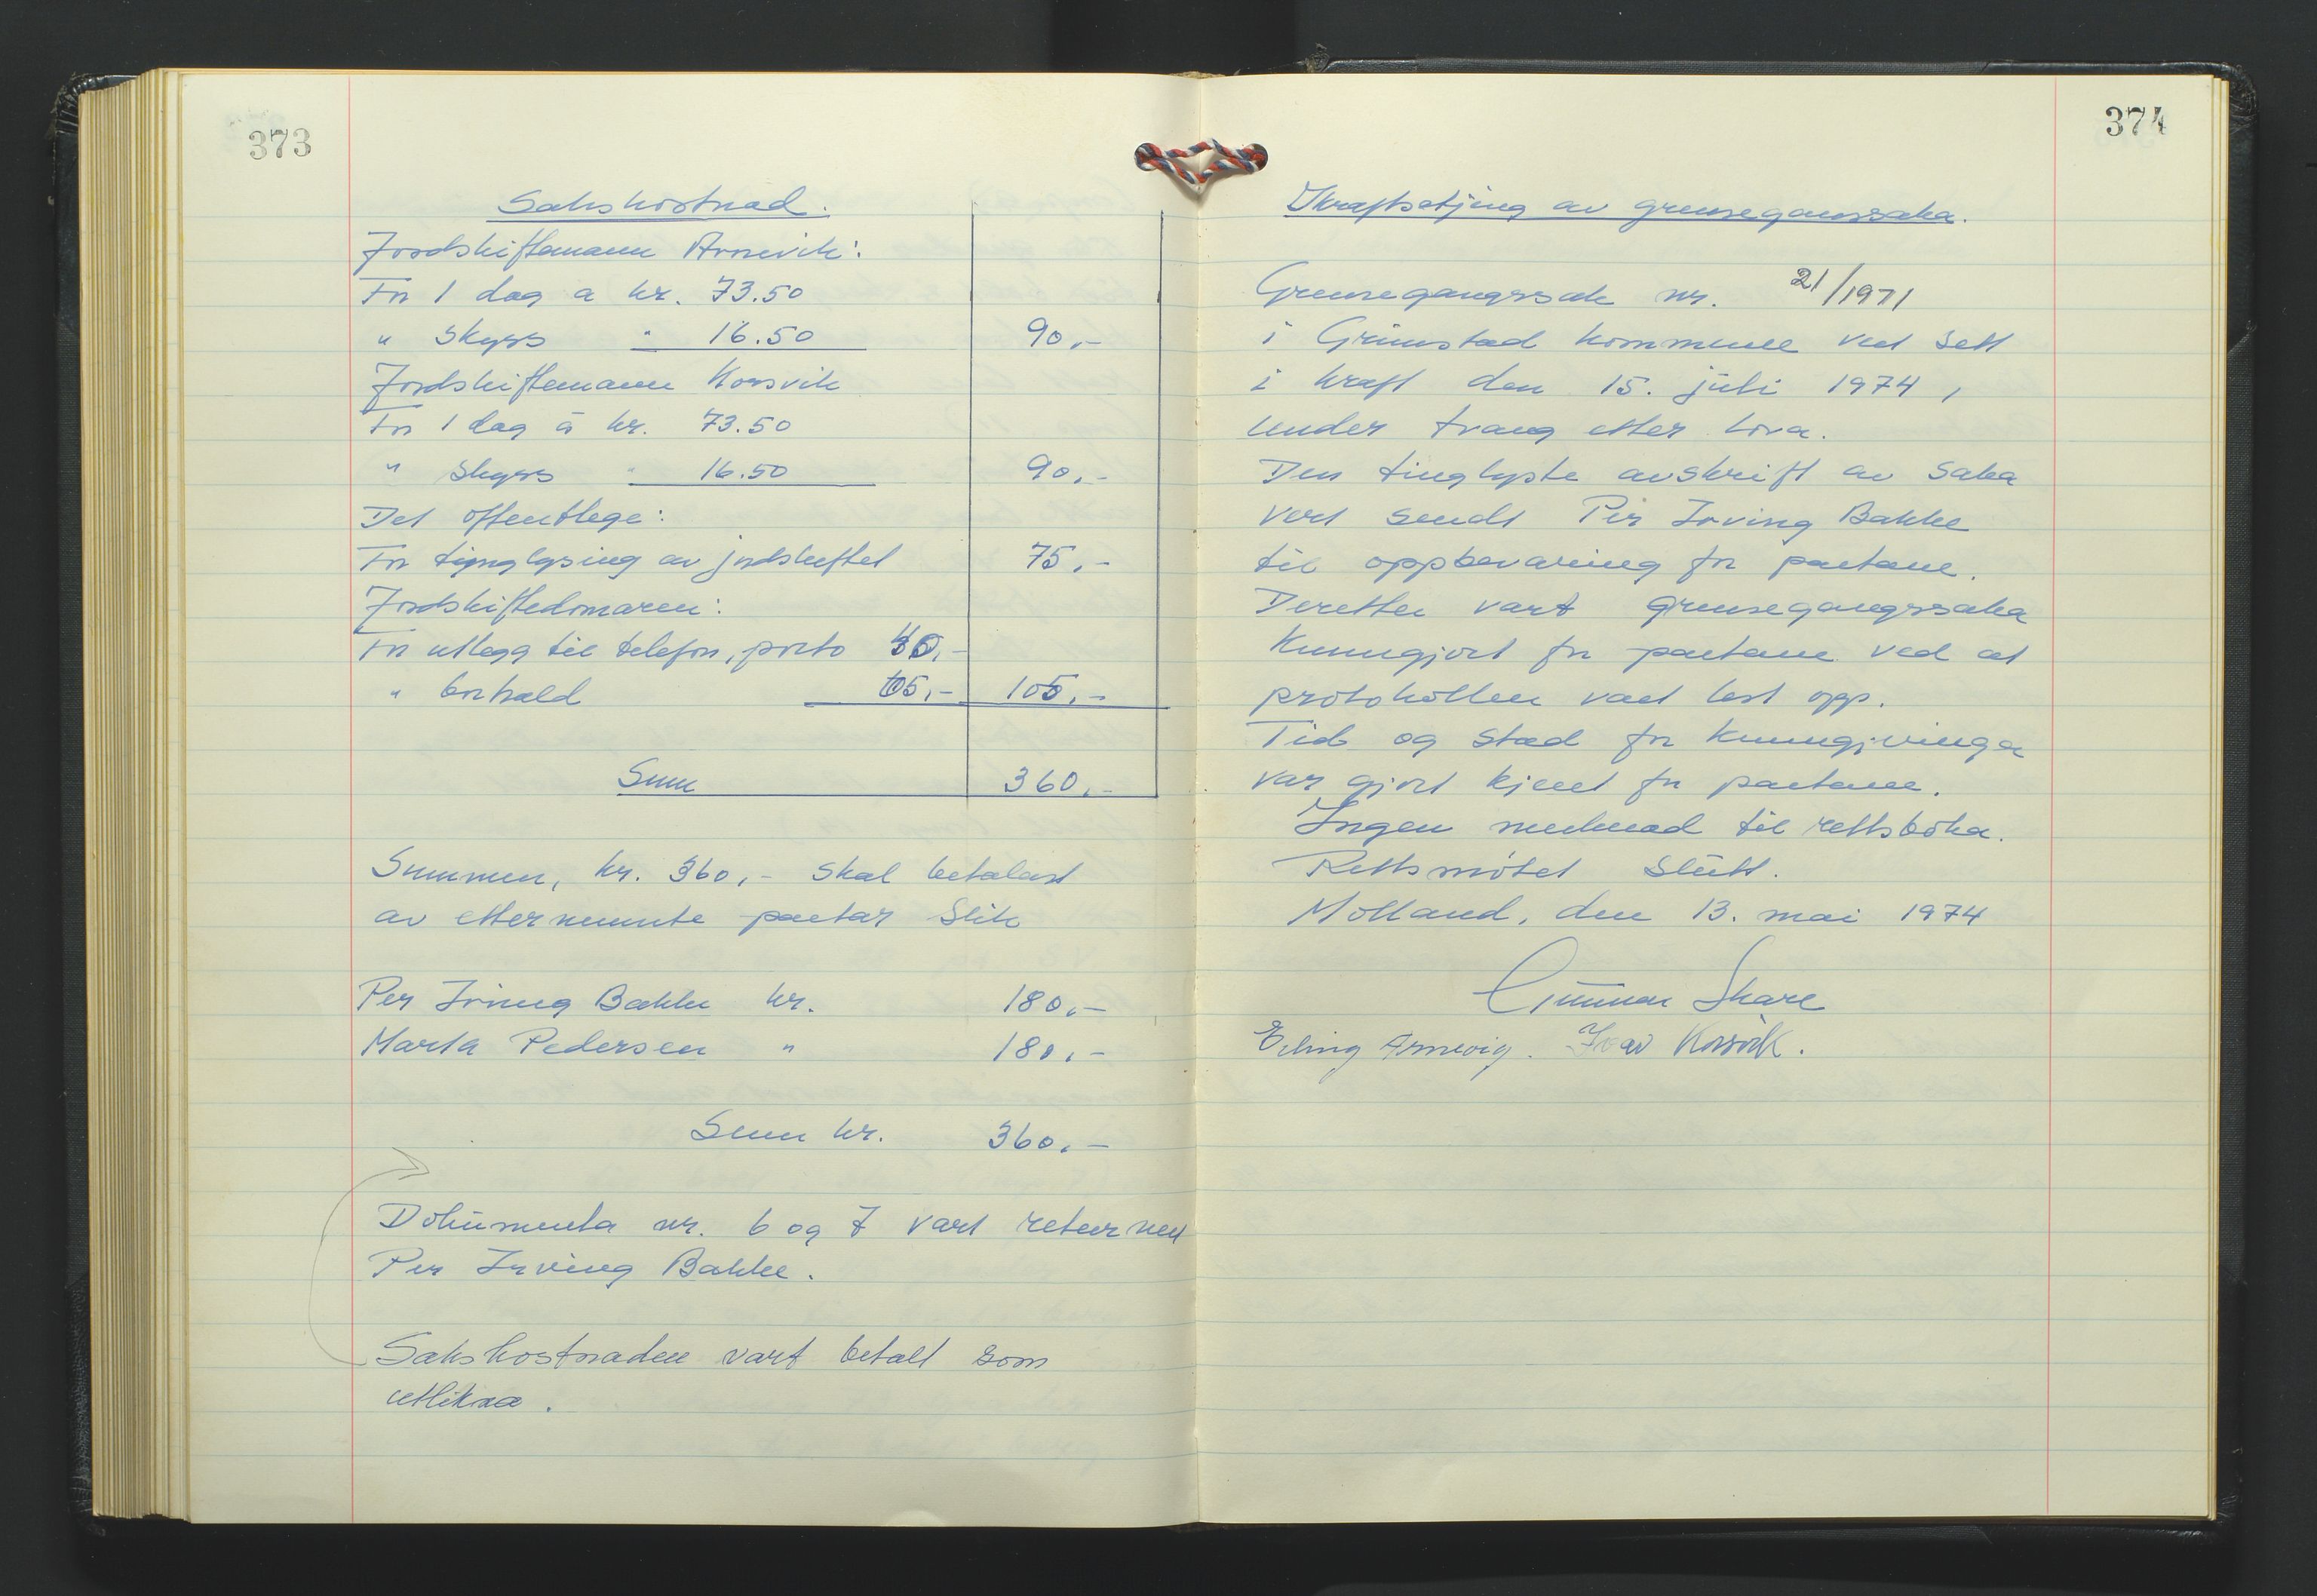 373
Sakskostnad.
Jordskiftemann Arnevik:
For 1 dag a kr. 73.50
" Skyss " 16.50 90,-
Jordskiftemann Korsvik
For 1 dag á kr. 73.50
" Skyss " 16.50 90,-
Det offentlege:
For tinglysing av jordskiftet 75,-
Jordskiftedomaren:
For utlegg til telefon, porto 40,-
" korhald 65,- 105,-
Sum 360,-
Summen, kr. 360,- skal betalast
av etternemnte partar slik
Per Irving Bakke kr. 180,-
Marta Pedersen " 180,-
Sum kr. 360,-
Dokumenta nr. 6 og 7 vart returnert
Per Irving Bakke.
Sakskostnaden vart betalt som
utlikna.
374
Ikraftsetjing av grensegangssaka.
Grensegangssak nr. 21/1971
i Grimstad kommune vert sett
i kraft den 15. juli 1974,
under tvang etter lova.
Den tinglyste avskrift av saka
vert sendt Per Irving Bakke
til oppbevaring for partane.
Deretter vart grensegangssaka
kunngjort for partane ved at
protokollen vart lest opp.
Tid og stad for kunngjeringa
var gjort kjent for partane.
Ingen merknad til rettsboka.
Rettsmøtet slutt.
Molland, den 13. mai 1974
Gunnar Skare
Erling Arnevig. Ivar Korsvik.